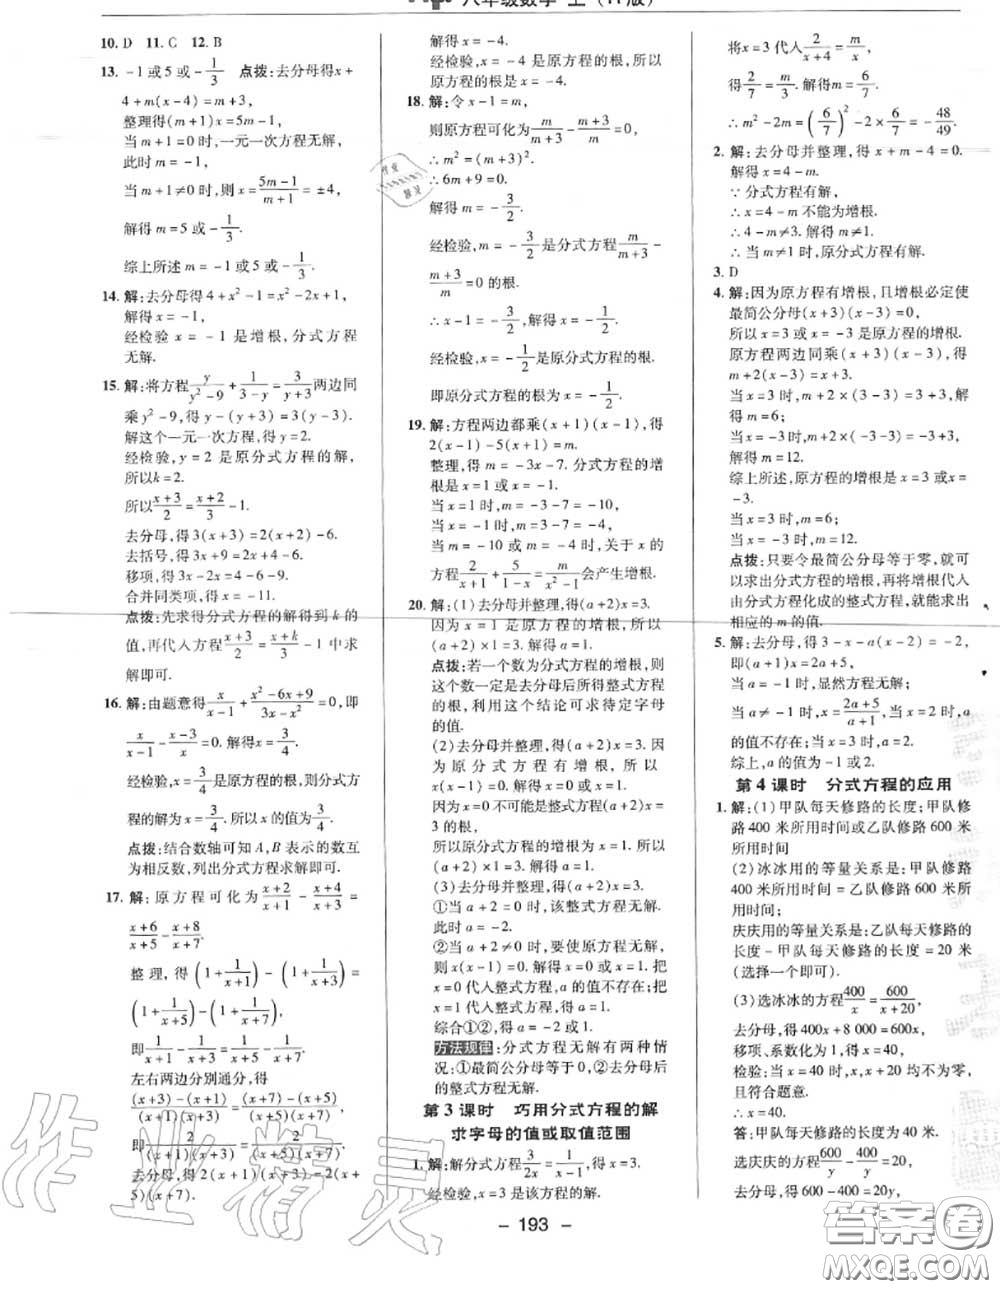 八年级数学 上(
10. D 11. C 12. B
13. -1或5或-1/3 点拨:去分母得x+
4+m(x-4)=m+3,
整理得(m+1)x=5m-1,
当m+1=0时,一元一次方程无解,
此时m=-1,
当m+1≠0时,则x=(5m-1)/(m+1)=±4,
解得m=5或-1/3,
综上所述m=-1或5或-1/3.
14. 解:去分母得4+x²-1=x²-2x+1,
解得x=-1,
经检验x=-1是增根,分式方程
无解.
15. 解:将方程y/(y²-9)+1/(3-y)=3/(y+3)两边同
乘y²-9,得y-(y+3)=3(y-3).
解这个一元一次方程,得y=2.
经检验,y=2是原分式方程的解,
所以k=2.
所以(x+3)/2=(x+2)/3-1.
去分母,得3(x+3)=2(x+2)-6.
去括号,得3x+9=2x+4-6.
移项,得3x-2x=4-6-9.
合并同类项,得x=-11.
点拨:先求得分式方程的解得到k的
值,再代入方程(x+3)/2=(x+k)/3-1中求
解即可.
16. 解:由题意得x/(x-1)+(x²-6x+9)/(3x-x²)=0,即
x/(x-1)-(x-3)/x=0.解得x=3/4.
经检验,x=3/4是原方程的根,则分式方
程的解为x=3/4.所以x的值为3/4.
点拨:结合数轴可知A,B表示的数互
为相反数,列出分式方程求解即可.
17. 解:原方程可化为(x+2)/(x+1)-(x+4)/(x+3)=
(x+6)/(x+5)-(x+8)/(x+7).
整理,得(1+1/(x+1))-(1+1/(x+3))=
(1+1/(x+5))-(1+1/(x+7)),
即1/(x+1)-1/(x+3)=1/(x+5)-1/(x+7).
左右两边分别通分,得
((x+3)-(x+1))/((x+1)(x+3))=((x+7)-(x+5))/((x+5)(x+7)),
即2/((x+1)(x+3))=2/((x+5)(x+7)).
去分母,得2(x+1)(x+3)=
2(x+5)(x+7).
解得x=-4.
经检验,x=-4是原方程的根,所以
原方程的根是x=-4.
18. 解:令x-1=m,
则原方程可化为m/(m+3)-(m+3)/m=0,
∴m²=(m+3)².
∴6m+9=0.
解得m=-3/2.
经检验,m=-3/2是分式方程m/(m+3)-
(m+3)/m=0的根.
∴x-1=-3/2,解得x=-1/2.
经检验,x=-1/2是原分式方程的根.
即原分式方程的根为x=-1/2.
19. 解:方程两边都乘(x+1)(x-1),得
2(x-1)-5(x+1)=m.
整理,得m=-3x-7.分式方程的增
根是x=1或x=-1.
当x=1时,m=-3-7=-10,
当x=-1时,m=3-7=-4,
当m=-10或m=-4时,关于x的
方程2/(x+1)+5/(1-x)=m/(x²-1)会产生增根.
20. 解:(1)去分母并整理,得(a+2)x=3.
因为x=1是原方程的增根,所以
(a+2)×1=3.解得a=1.
点拨:若一个数为分式方程的增根,则
这个数一定是去分母后所得整式方程
的根,利用这个结论可求待定字母
的值.
(2)去分母并整理,得(a+2)x=3.因
为原分式方程有增根,所以
x(x-1)=0.解得x=0或1.
因为x=0不可能是整式方程(a+2)x
=3的根,
所以原分式方程的增根为x=1.所以
(a+2)×1=3.解得a=1.
(3)去分母并整理,得(a+2)x=3.
①当a+2=0时,该整式方程无解.
此时a=-2.
②当a+2≠0时,要使原方程无解,
则x(x-1)=0,得x=0或x=1.把
x=0代入整式方程,a的值不存在;把
x=1代入整式方程,得a=1.
综合①②,得a=-2或1.
方法规律:分式方程无解有两种情
况:①最简公分母等于0,②去分母后
的整式方程无解.
第3课时 巧用分式方程的解
求字母的值或取值范围
1. 解:解分式方程3/(2x)=1/(x-1),得x=3.
经检验,x=3是该方程的解.
将x=3代入2/(x+4)=m/x,
得2/7=m/3.解得m=6/7.
∴m²-2m=(6/7)²-2×6/7=-48/49.
2. 解:去分母并整理,得x+m-4=0.
解得x=4-m.
∵分式方程有解,
∴x=4-m不能为增根.
∴4-m≠3.解得m≠1.
∴当m≠1时,原分式方程有解.
3. D
4. 解:因为原方程有增根,且增根必定使
最简公分母(x+3)(x-3)=0,
所以x=3或x=-3是原方程的增根.
原方程两边同乘(x+3)(x-3),得
m+2(x-3)=x+3.
当x=3时,m+2×(3-3)=3+3,解
得m=6;
当x=-3时,m+2×(-3-3)=-3+3,
解得m=12.
综上所述,原方程的增根是x=3或x=
-3.
当x=3时,m=6;
当x=-3时,m=12.
点拨:只要令最简公分母等于零,就可
以求出分式方程的增根,再将增根代入
由分式方程化成的整式方程,就能求出
相应的m的值.
5. 解:去分母,得3-x-a(x-2)=-2,
即(a+1)x=2a+5,
当a=-1时,显然方程无解;
当a≠-1时,x=(2a+5)/(a+1),当x=2时,a
的值不存在;当x=3时,a=2.
综上,a的值为-1或2.
第4课时 分式方程的应用
1. 解:(1)甲队每天修路的长度;甲队修
路400米所用时间或乙队修路600米
所用时间
(2)冰冰用的等量关系是:甲队修路
400米所用时间=乙队修路600米所
用时间;
庆庆用的等量关系是:乙队每天修路的
长度-甲队每天修路的长度=20米
(选择一个即可).
(3)选冰冰的方程400/x=600/(x+20),
去分母,得400x+8 000=600x,
移项、系数化为1,得x=40,
检验:当x=40时,x,x+20均不为零,
且符合题意.
∴x=40.
答:甲队每天修路的长度为40米.
选庆庆的方程600/y-400/y=20,
去分母,得600-400=20y,
- 193 -
作业精灵
答案圈
MXQE.COM